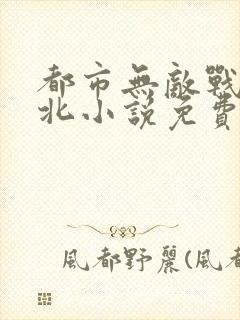 都市無敵戰
北小說免費
風都野麗(風都